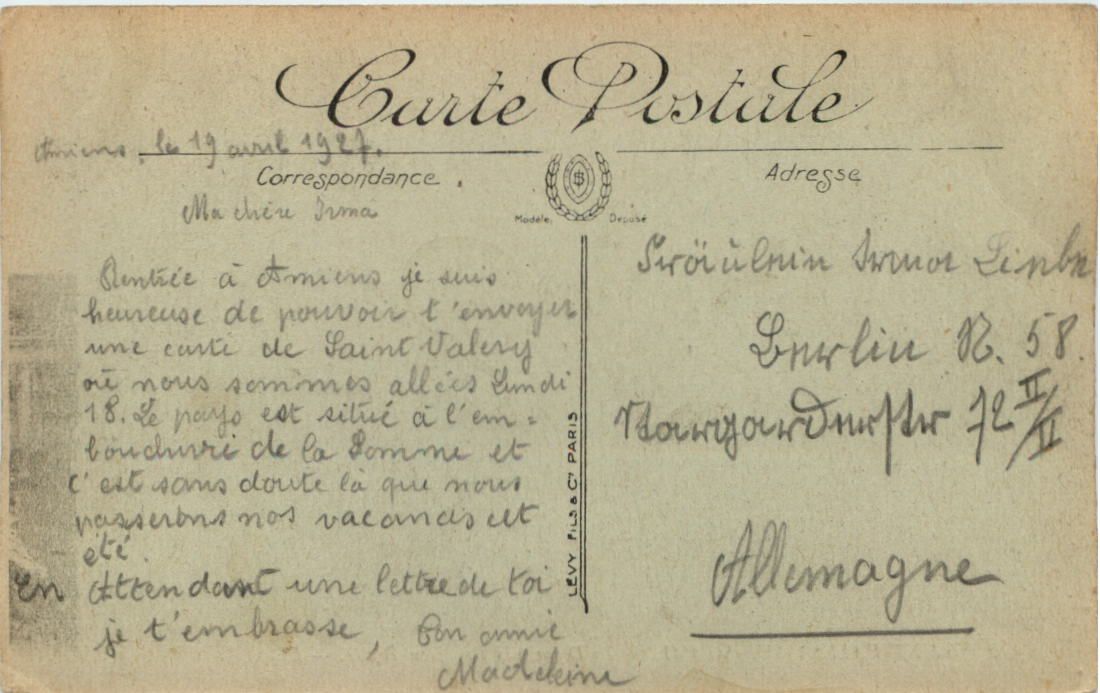 Carte Postale
Amiens, le 19 avril 1927.
Correspondance
Ma chère Irma
Rentrée à Amiens je suis
heureuse de pouvoir t'envoyer
une carte de Saint Valery
où nous sommes allées Lundi
18. Le pays est situé à l'em=
bouchure de la Somme et
c'est sans doute là que nous
passerons nos vacances cet
été.
En Attendant une lettre de toi
je t'embrasse, Ton amie
Madeleine
Modèle Déposé
LÉVY FILS & Cie PARIS
Adresse
Fräulein Irma
Berlin N. 58.
Stargarderstr 72 II/II
Allemagne